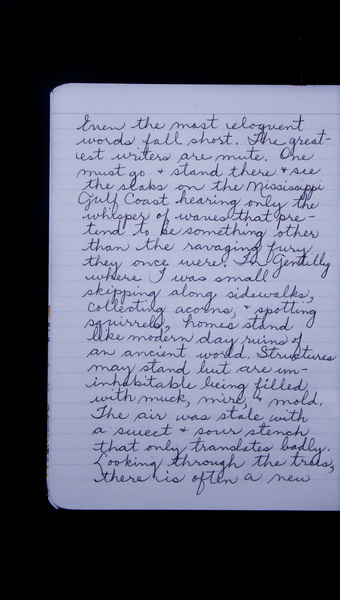 Even the most eloquent
words fall short. The great-
est writers are mute. One
must go + stand there + see
the slabs on the Mississippi
Gulf Coast hearing only the
whisper of waves that pre-
tend to be something other
than the ravaging fury
they once were. In Gentilly
where I was small
skipping along sidewalks,
collecting acorns, + spotting
squirrels, homes stand
like modern day ruins of
an ancient world. Structures
may stand but are un-
inhabitable being filled
with muck, mire, + mold.
The air was stale with
a sweet + sour stench
that only translates badly.
Looking through the trees,
there is often a new